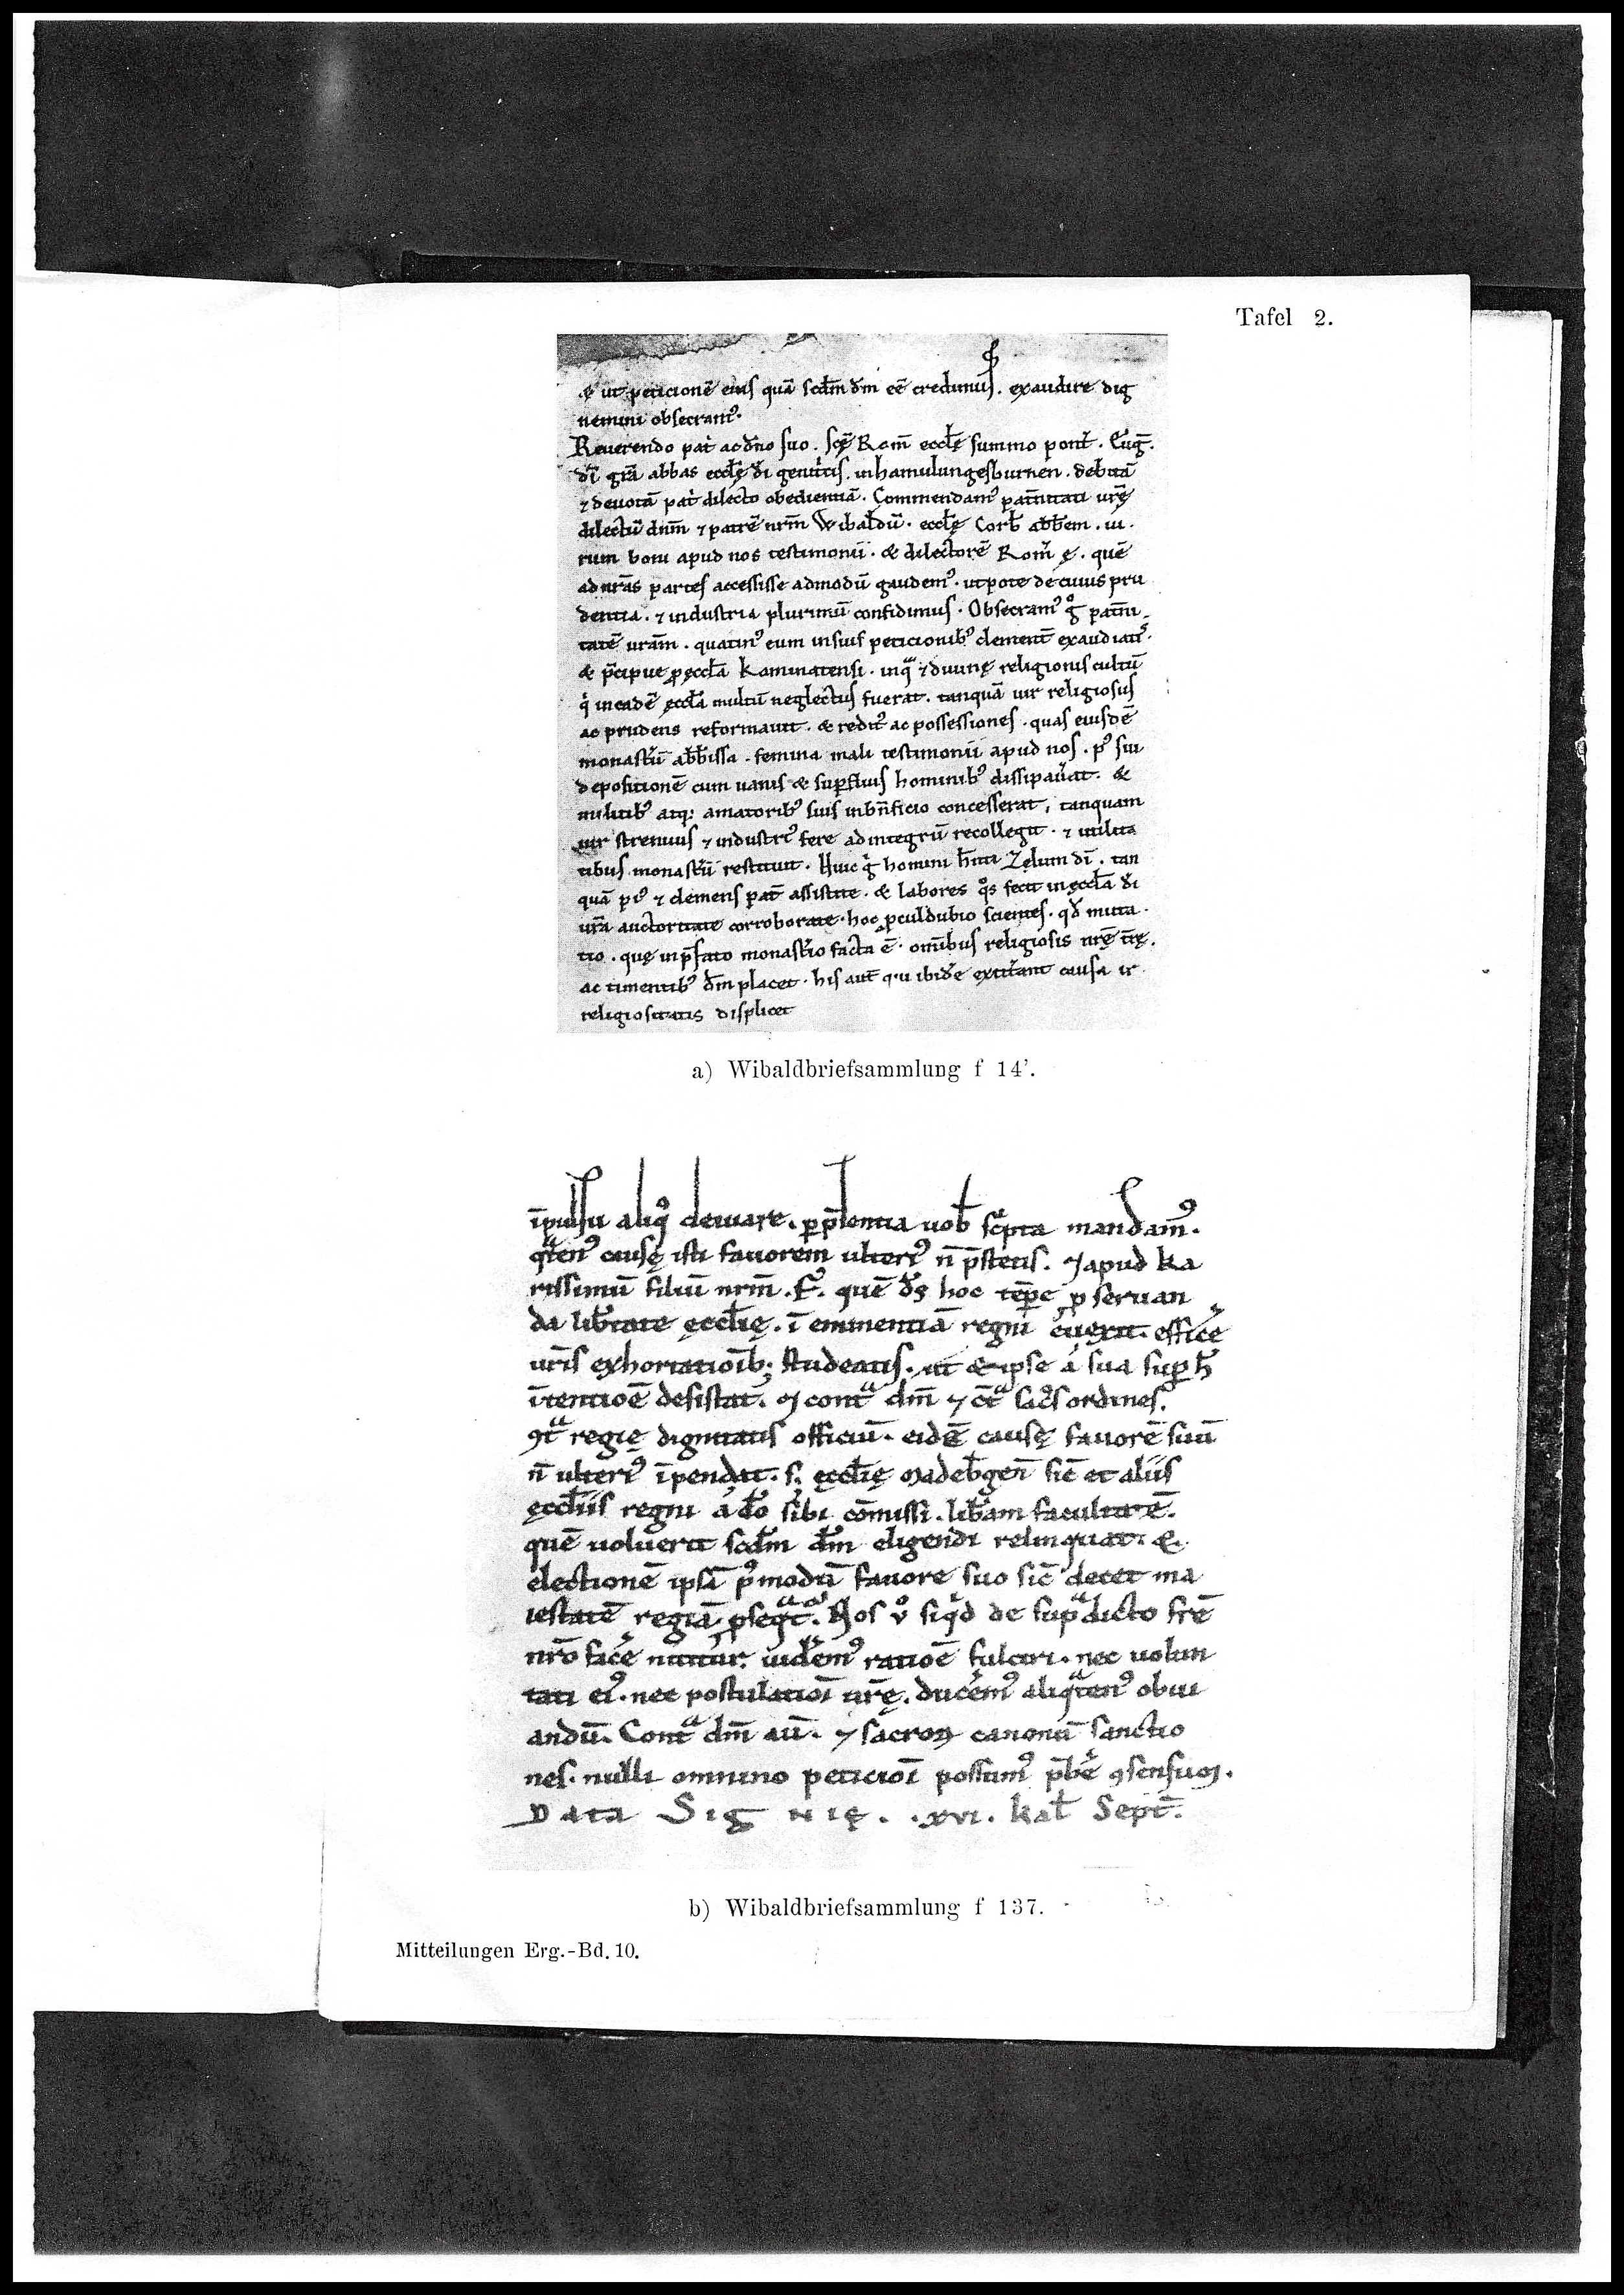 Tafel 2.
& ut peticionē eius quā scd̄m dm̄ eē credimus. exaudire dig
nemini obsecram᷒.
Reuerendo pat̄ ac dn̄o suo. scę̄ Rom̄ eccl̄ę summo pont̄. Euḡ.
dī grā abbas eccl̄ę dī genitīcis. in hamulungesburnen. debitā
⁊ deuotā pat̄ dilecto obedientiā. Commendam᷒ pat̄nitati urę̄
dilectū dn̄m ⁊ patrē nr̄m Wibaldū. eccl̄ę Corb̄ abb̄em. ui.
rum boni apud nos testimonii. & dilectorē Rom̄ ę. quē
ad nr̄as partes accessisse admodū gaudem᷒. utpote de cuius pru
dentia. ⁊ industria plurimū confidimus. Obsecram᷒ gͦ pat̄ni
tatē urām. quatin᷒ eum in suis peticionib᷒ clement̄ exaudiatis.
& p̄cipue ꝓ eccl̄a kaminatensi. in qͣ ⁊ diuinę religionis cultū
qͥ in eadē eccl̄a multū neglectus fuerat. tanquā uir religiosus
ac prudens reformauit. & redit᷒ ac possessiones. quas eiusdē
monast̄ii abb̄issa. femina mali testimonii apud nos. p᷒ sui
depositionē cum uanis & suꝑfluis hominib᷒ dissipau̅at. &
militib᷒ atq; amatorib᷒ suis in bn̄ficio concesserat, tanquam
uir strenuus ⁊ industri᷒ fere ad integrū recollegit. ⁊ utilita
tibus monast̄ii restituit. Huic gͦ homini hn̄ti Zelum dī. tan
quā pi᷒ ⁊ clemens pat̄ assistite. & labores qͦs fecit in eccl̄a dī
urā auctoritate corroborate. hoc ꝓculdubio scientes. qd̄ muta.
tio. quę in p̄fato monast̄io facta ē. om̄ibus religiosis nrę̄ tr̄ę.
ac timentib᷒ dm̄ placet. his aut̄ qui ibidē extit̄ant causa ir
religiositatis displicet
a) Wibaldbriefsammlung f 14’.
īpulsu aliqͦ deuiare. ꝑ p̄sentia uob̄ sc̄pta mandam᷒.
qͣten᷒ causę isti fauorem ulteri᷒ n̄ p̄stetis. ⁊ apud ka
rissimū filiū nr̄m .F. quē ds̄ hoc tēpe ꝓ seruan
da lib̄tate ęccl̄ię. ī eminentiā regni euexit. efficē
uris exhortatioīb; studeatis. ut & ipse á sua suꝑ h̄
ītentioē desistat. ⁊ contͣ dm̄ ⁊ c̄tͣ sac̄s ordines.
ꝯtͣ regię dignitatis officiū. eidē causę fauorē suū
n̄ ulteri᷒ īpendat. s; ęccl̄ię madeb̄gen̄ sic̄ et aliis
ęccl̄iis regni á dō sibi cōmissi. lib̄am facultatē.
quē uoluerit scd̄m dm̄ eligendi relinquat. &
electionē ipsā p᷒modū fauore suo sic̄ decet ma
iestatē regiā ꝓseqͣt᷒. Nos v̊ siqͥd de sup̄dicto frē
nrō facē nititur. uidem᷒ ratioē fulciri. nec uolun
tati ei᷒. nec postulatioī urę̄. ducem᷒ aliqͣten᷒ obui
andū. Contͣ dm̄ aū. ⁊ sacroꝝ canonū sanctio
nes. nulli omnino peticioī possum᷒ p̄bē ꝯsensum.
Data Signię. .xvi. kal̄ Sept̄.
b) Wibaldbriefsammlung f 137.
Mitteilungen Erg.-Bd. 10.